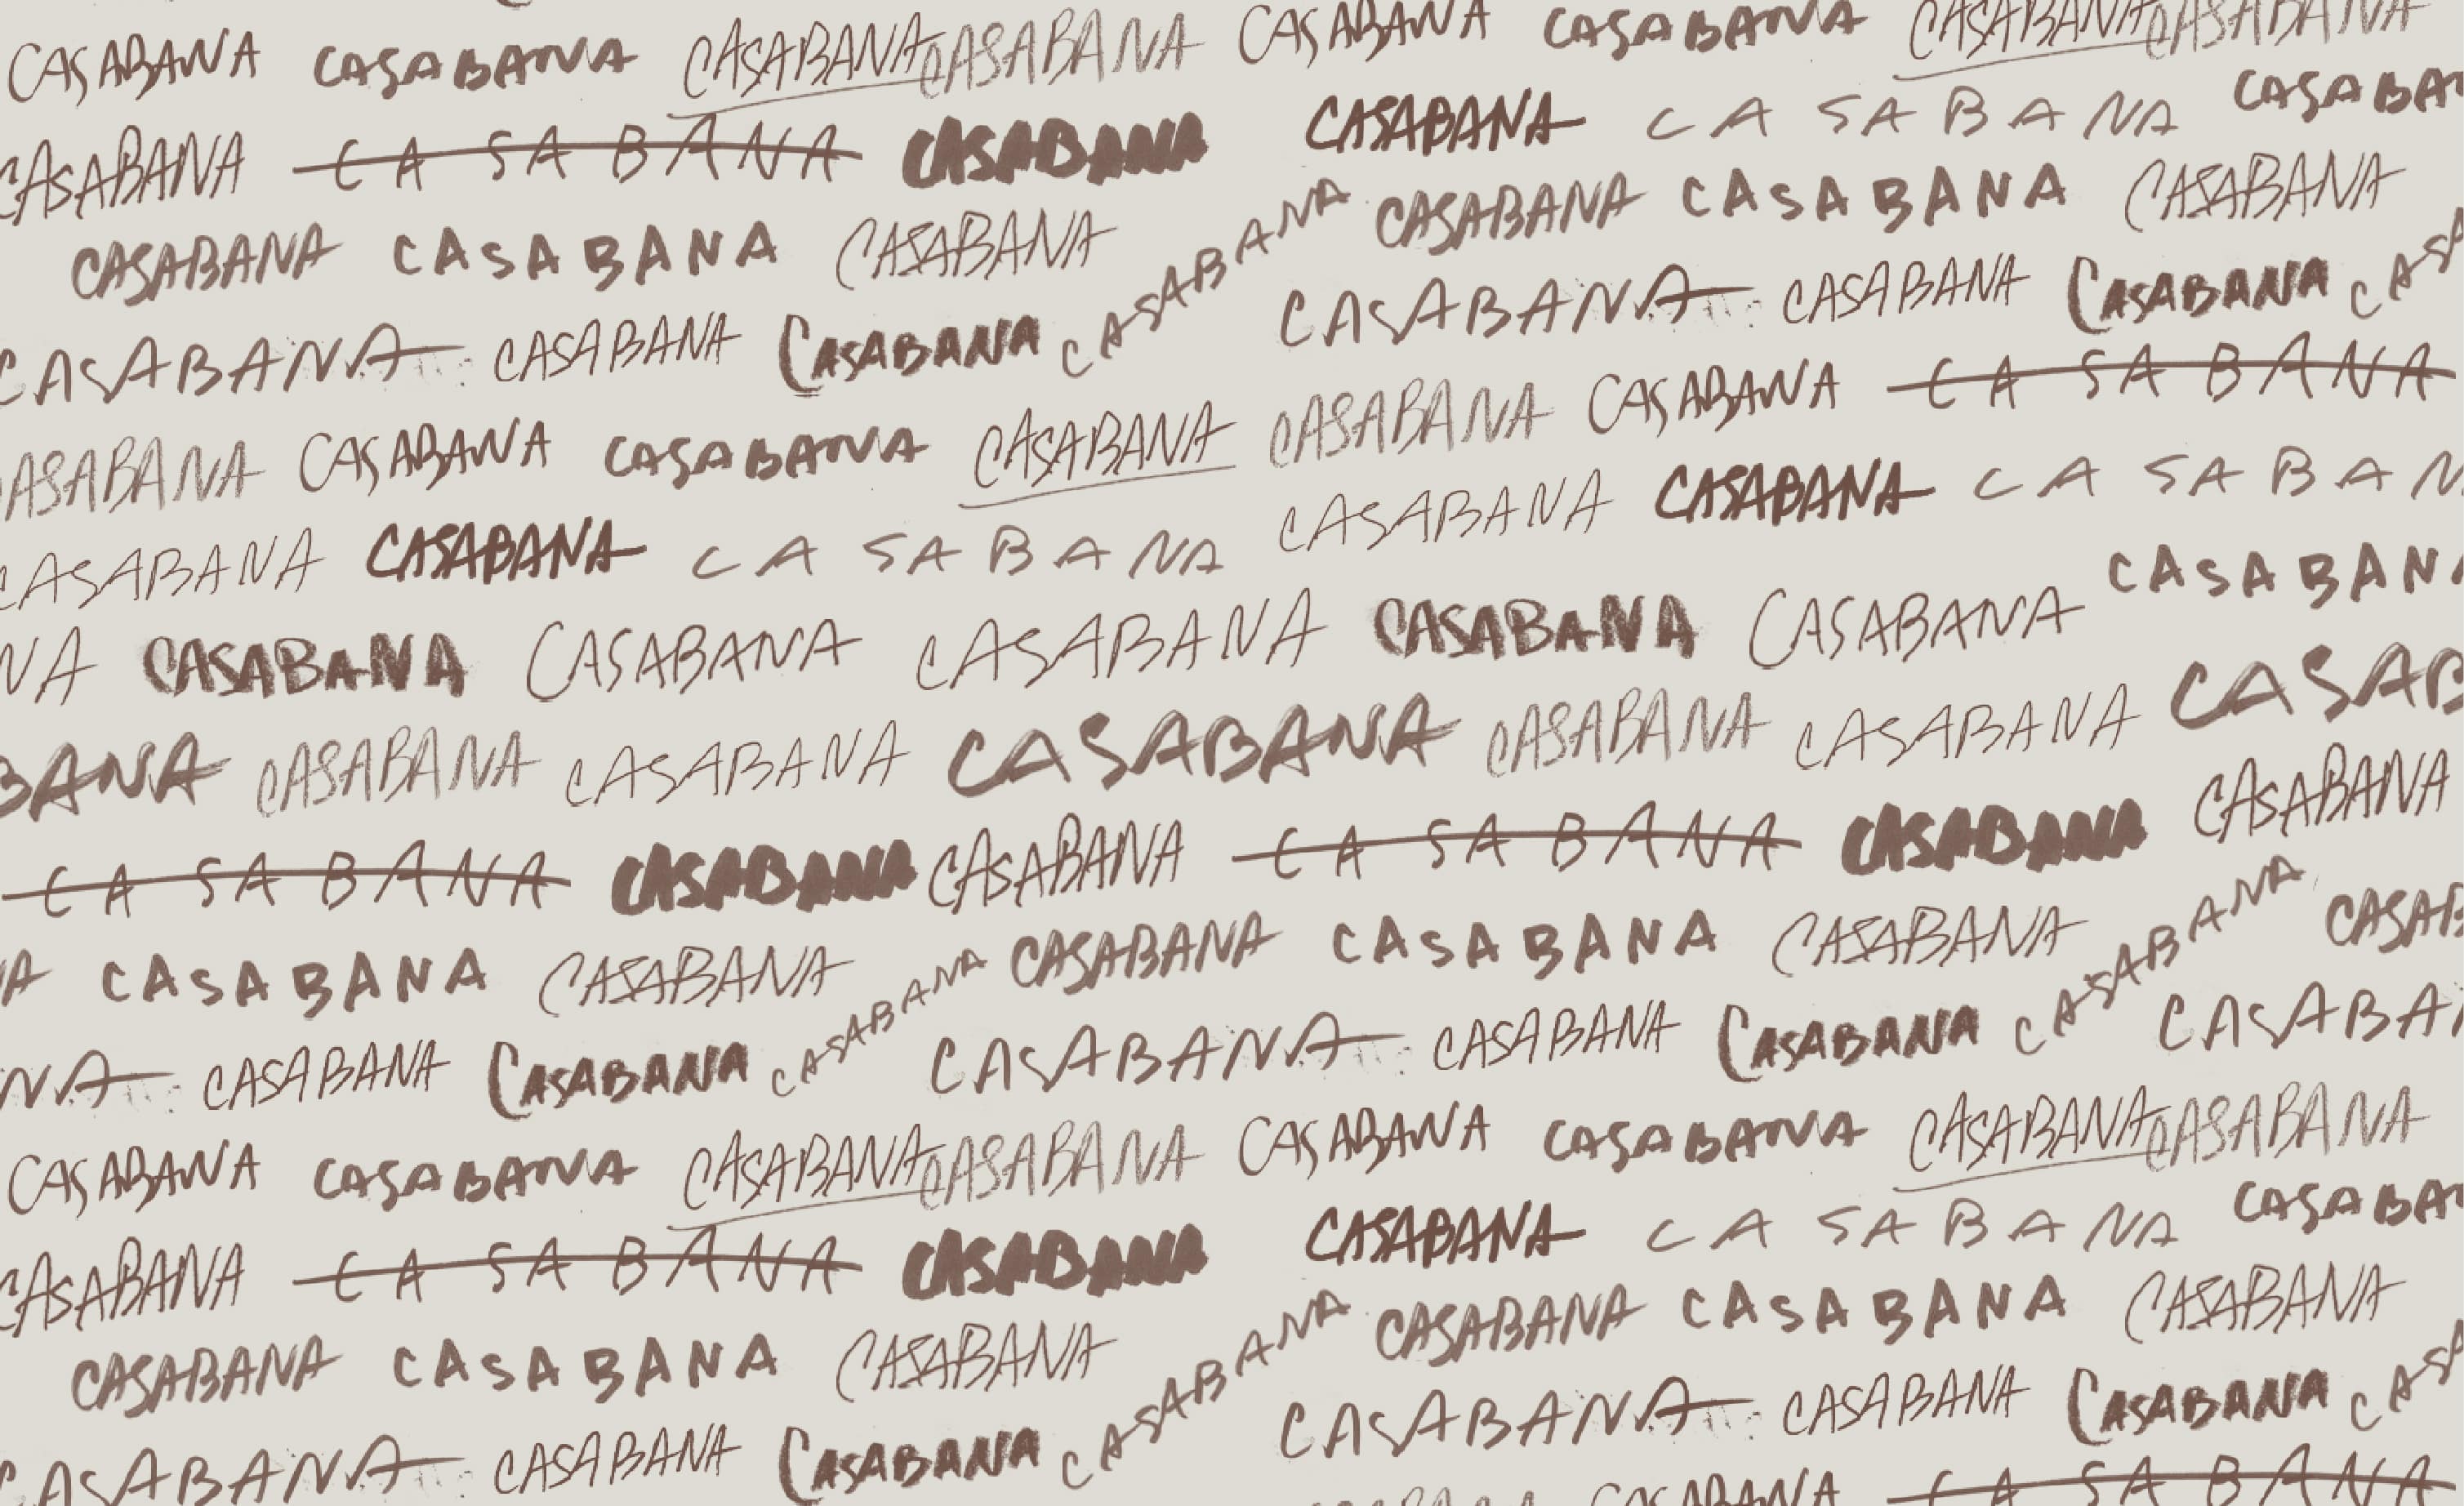 CASABANA CASABANA CASABANA CASABANA CASABANA CASABANA CASABANA CASABANA
CASABANA CASABANA CASABANA CASABANA CASABANA CASABA
CASABANA CASABANA CASABANA CASABANA CASABANA CASABANA
CASABANA CASABANA CASABANA CASABANA CASABANA CASABANA CASABANA CAS
ASABANA CASABANA CASABANA CASABANA CASABANA CASABANA CASABANA
CASABANA CASABANA CASABANA CASABANA CASABANA CASABAN
NA CASABANA CASABANA CASABANA CASABANA CASABANA CASABAN
BANA CASABANA CASABANA CASABANA CASABANA CASABANA CASAB
CASABANA CASABANA CASABANA CASABANA CASABANA CASABANA
A CASABANA CASABANA CASABANA CASABANA CASABANA CASAB
NA CASABANA CASABANA CASABANA CASABANA CASABANA CASABANA CASABANA CASABA
CASABANA CASABANA CASABANA CASABANA CASABANA CASABANA CASABANA CASABANA
CASABANA CASABANA CASABANA CASABANA CASABANA CASABA
CASABANA CASABANA CASABANA CASABANA CASABANA CASABANA
CASABANA CASABANA CASABANA CASABANA CASABANA CASABANA CASABANA CAS
CASABANA CASABANA